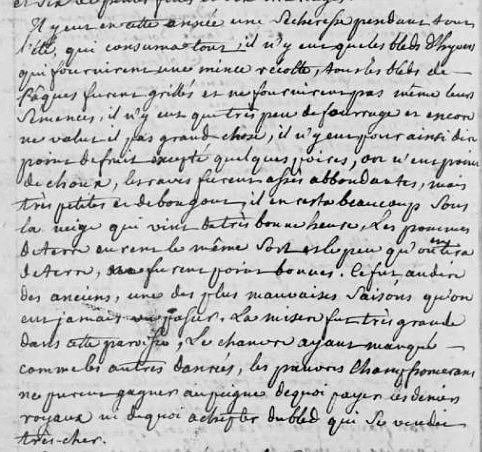 Il y eut en cette année une sécheresse pendant tout
l'été, qui consuma tout, il n'y eut que les bleds d'hyvers
qui fournirent une mince récolte, tous les bleds de
Pâques furent grillés et ne fournirent pas même leurs
semences, il n'y eut que très peu de fourrage et encore
ne valut il pas grand chose, il n'y eut pour ainsi dire
point de fruit excepté quelques poires, on n'eut point
de choux, les raves furent assés abbondantes, mais
très petites et de bon gout, il en resta beaucoup sous
la neige qui vint de très bonne heure, Les pommes
de terre eurent le même sort et le peu qu'on en tira
de terre, ne furent point bonnes. Ce fut au dire
des anciens, une des plus mauvaises saisons qu'on
eut jamais vu passer. La misere fut très grande
dans cette paroisse, Le chanvre ayant manqué
comme les autres danrées, les pauvres Champfromerans
ne purent gagner au peigne de quoi payer les deniers
royaux ni de quoi acheter du bled qui se vendit
très-cher.